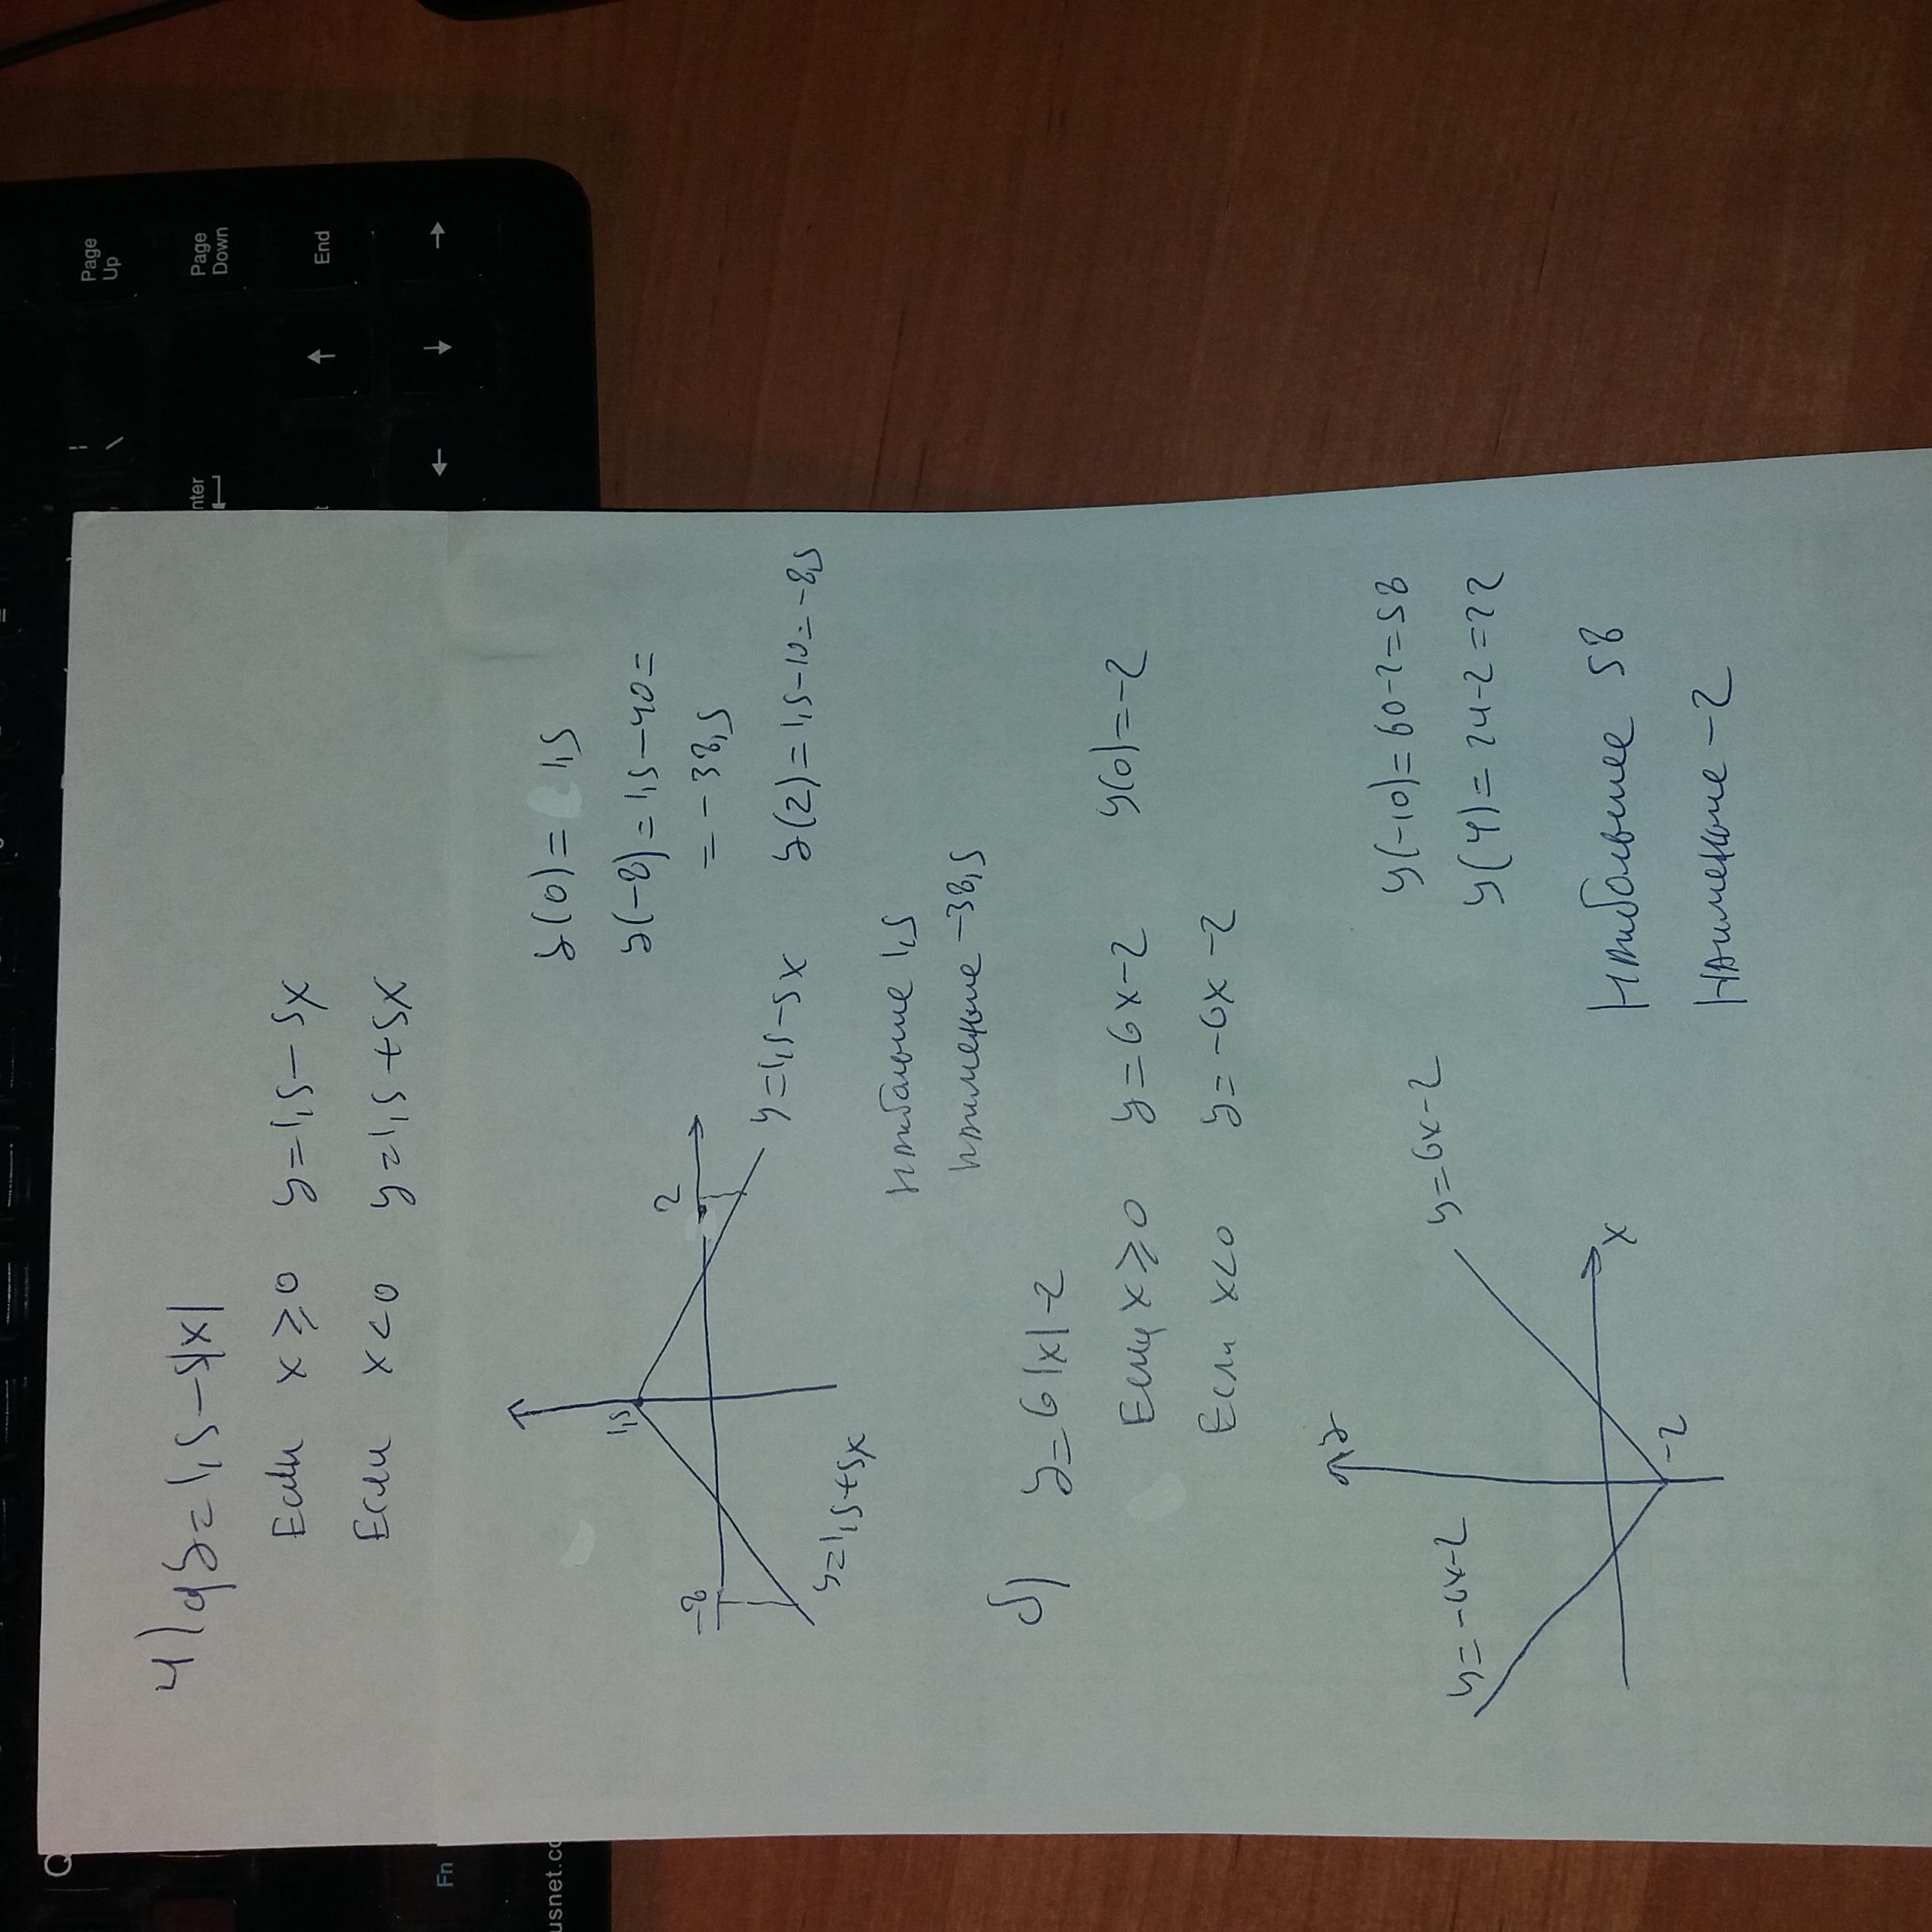 4) a) y=1,5-5|x|
Если x ≥ 0 y=1,5-5x
Если x < 0 y=1,5+5x
y(0)=1,5
y(-8)=1,5-40=
=-38,5
y(2)=1,5-10=-8,5
1,5
-8
2
y=1,5-5x
y=1,5+5x
наибольшее 1,5
наименьшее -38,5
б) y=6|x|-2
Если x ≥ 0 y=6x-2 y(0)=-2
Если x<0 y=-6x-2
y
y=-6x-2
y=6x-2
x
-2
y(-10)=60-2=58
y(4)=24-2=22
Наибольшее 58
Наименьшее -2
Page Up
Page Down
End
Fn